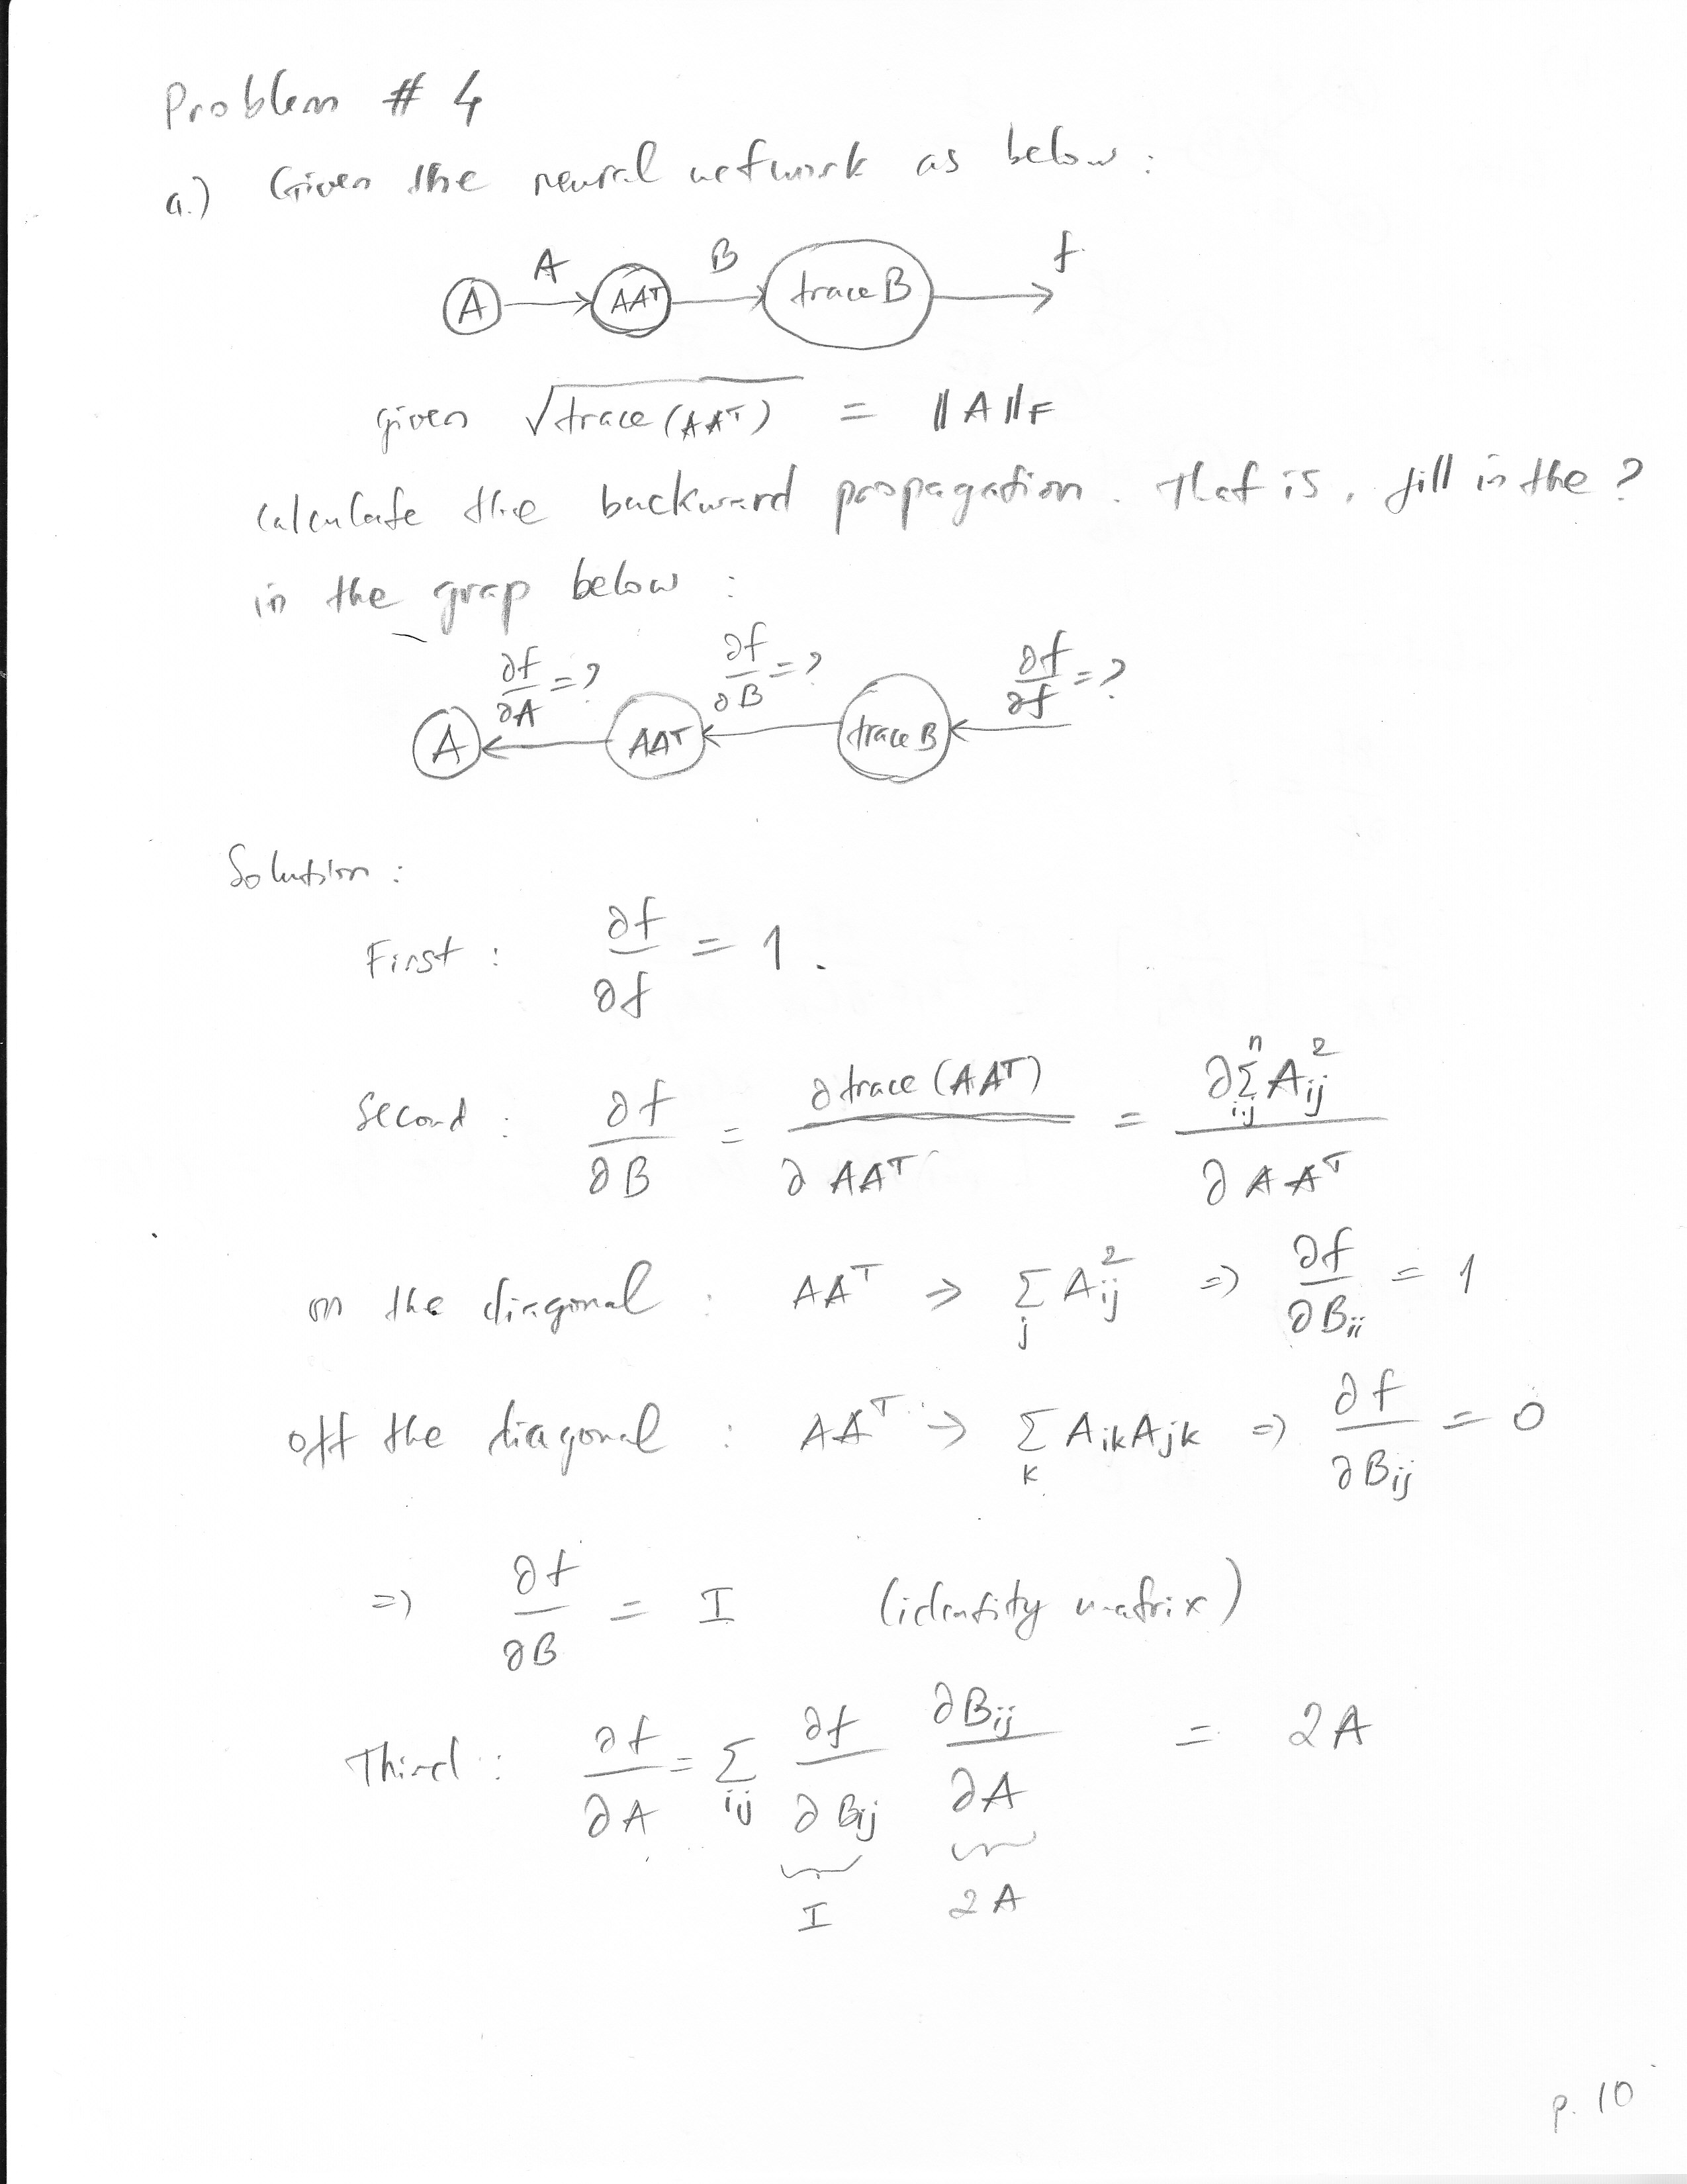 Problem # 4
a.) Given the neural network as below :
A A AAᵀ B trace B f
given √trace(AAᵀ) = ‖A‖F
calculate the backward propagation. That is, fill in the ?
in the grap below :
∂f/∂A = ? ∂f/∂B = ? ∂f/∂f = ?
A AAᵀ trace B
Solution :
First : ∂f/∂f = 1.
Second : ∂f/∂B = ∂ trace (AAᵀ) / ∂ AAᵀ = ∂ Σ_{i,j}^n A_ij² / ∂ AAᵀ
on the diagonal : AAᵀ → Σ_j A_ij² ⇒ ∂f/∂B_ii = 1
off the diagonal : AAᵀ → Σ_k A_ik A_jk ⇒ ∂f/∂B_ij = 0
⇒ ∂f/∂B = I (identity matrix)
Third : ∂f/∂A = Σ_ij ∂f/∂B_ij ∂B_ij/∂A = 2A
I 2A
p. 10